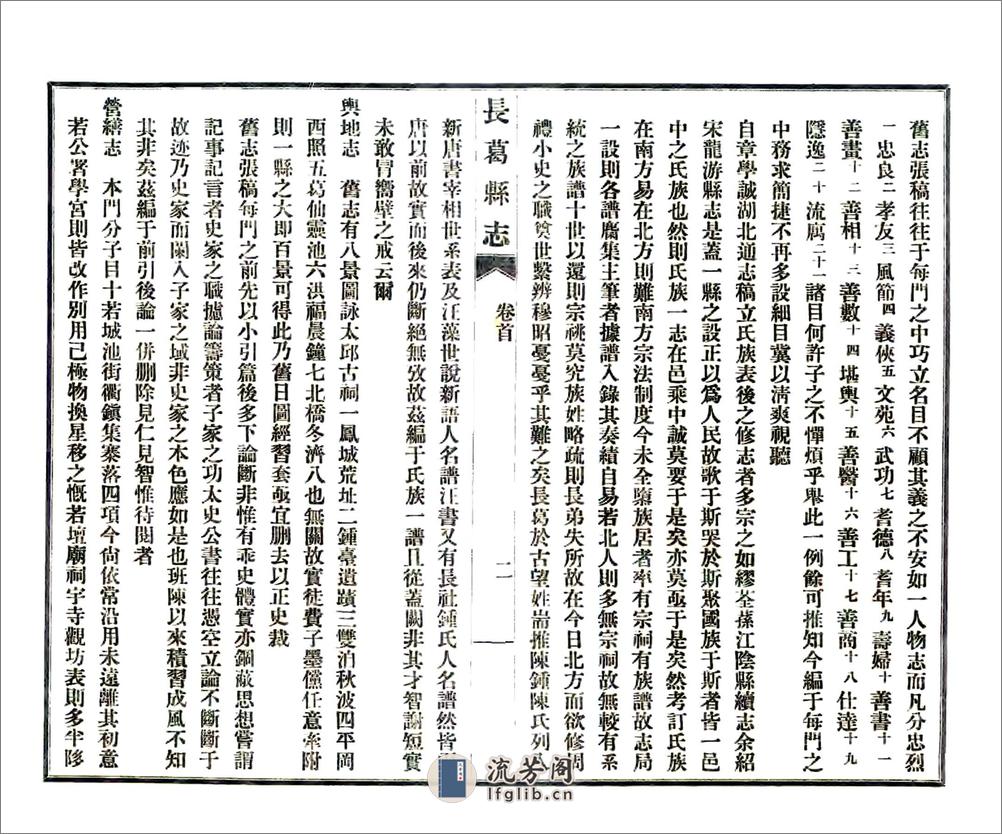 舊志張稿往往于每門之中巧立名目不顧其義之不安如一人物志而凡分忠烈
一忠良二孝友三風節四義俠五文苑六武功七耆德八耆年九壽婦十善書十一
善畫十二善相十三善數十四堪輿十五善醫十六善工十七善商十八仕達十九
隱逸二十流寓二十一諸目何許子之不憚煩乎舉此一例餘可推知今編于每門之
中務求簡捷不再多設細目冀以清爽視聽
自章學誠湖北通志稿立氏族表後之修志者多宗之如繆荃蓀江陰縣續志余紹
宋龍游縣志是蓋一縣之設正以爲人民故歌于斯哭於斯聚國族于斯者皆一邑
中之氏族也然則氏族一志在邑乘中誠莫要于是矣亦莫亟于是矣然考訂氏族
在南方易在北方則難南方宗法制度今未全墮族居者率有宗祠有族譜故志局
一設則各譜廥集主筆者據譜入錄其奏績自易若北人則多無宗祠故無較有系
統之族譜十世以還則宗祧莫究族姓略疏則長弟失所故在今日北方而欲修周
禮小史之職奠世繫辨穆昭憂憂乎其難之矣長葛於古望姓耑推陳鍾陳氏列
長葛縣志
卷首
二
新唐書宰相世系表及汪藻世說新語人名譜汪書又有長社鍾氏人名譜然皆
唐以前故實而後來仍斷絕無攷故茲編于氏族一譜且從蓋闕非其才智謝短實
未敢冒嚮壁之戒云爾
輿地志　舊志有八景圖詠太邱古祠一鳳城荒址二鍾臺遺蹟三雙洎秋波四平岡
西照五葛仙靈池六洪福晨鐘七北橋冬濟八也無關故實徒費子墨儻任意牽附
則一縣之大即百景可得此乃舊日圖經習套亟宜删去以正史裁
舊志張稿每門之前先以小引篇後多下論斷非惟有乖史體實亦錮蔽思想嘗謂
記事記言者史家之職攄論籌策者子家之功太史公書往往憑空立論不斷斷于
故迹乃史家而闌入子家之域非史家之本色應如是也班陳以來積習成風不知
其非矣茲編于前引後論一併删除見仁見智惟待閱者
營繕志　本門分子目十若城池街衢鎭集寨落四項今尙依常沿用未遠離其初意
若公署學宮則皆改作別用己極物換星移之慨若壇廟祠宇寺觀坊表則多半陊
流芳阁
lfglib.cn